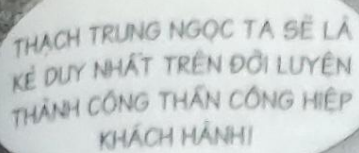 THẠCH TRUNG NGỌC TA SẼ LÀ
KẺ DUY NHẤT TRÊN ĐỜI LUYỆN
THÀNH CÔNG THẦN CÔNG HIỆP
KHÁCH HÀNH!